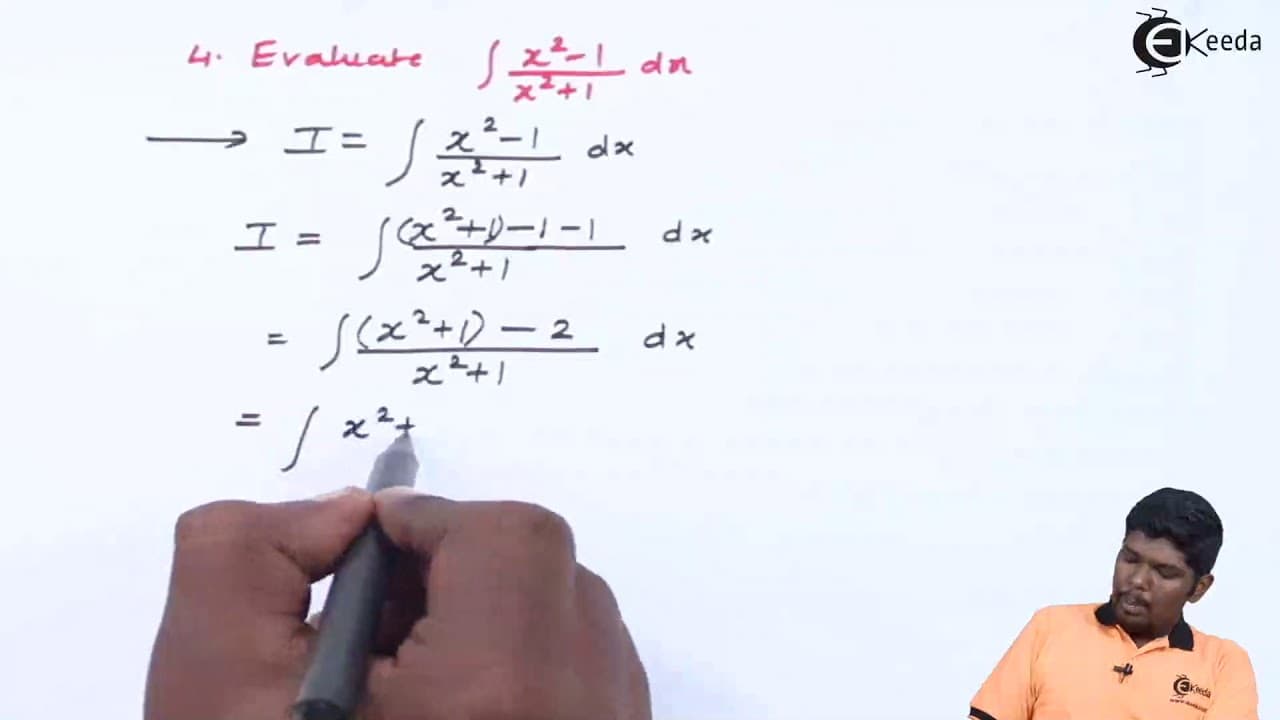 4. Evaluate ∫ x²-1 / x²+1 dx
→ I = ∫ x²-1 / x²+1 dx
I = ∫ (x²+1)-1-1 / x²+1 dx
= ∫ (x²+1) - 2 / x²+1 dx
= ∫ x²+
EKeeda
EKeeda